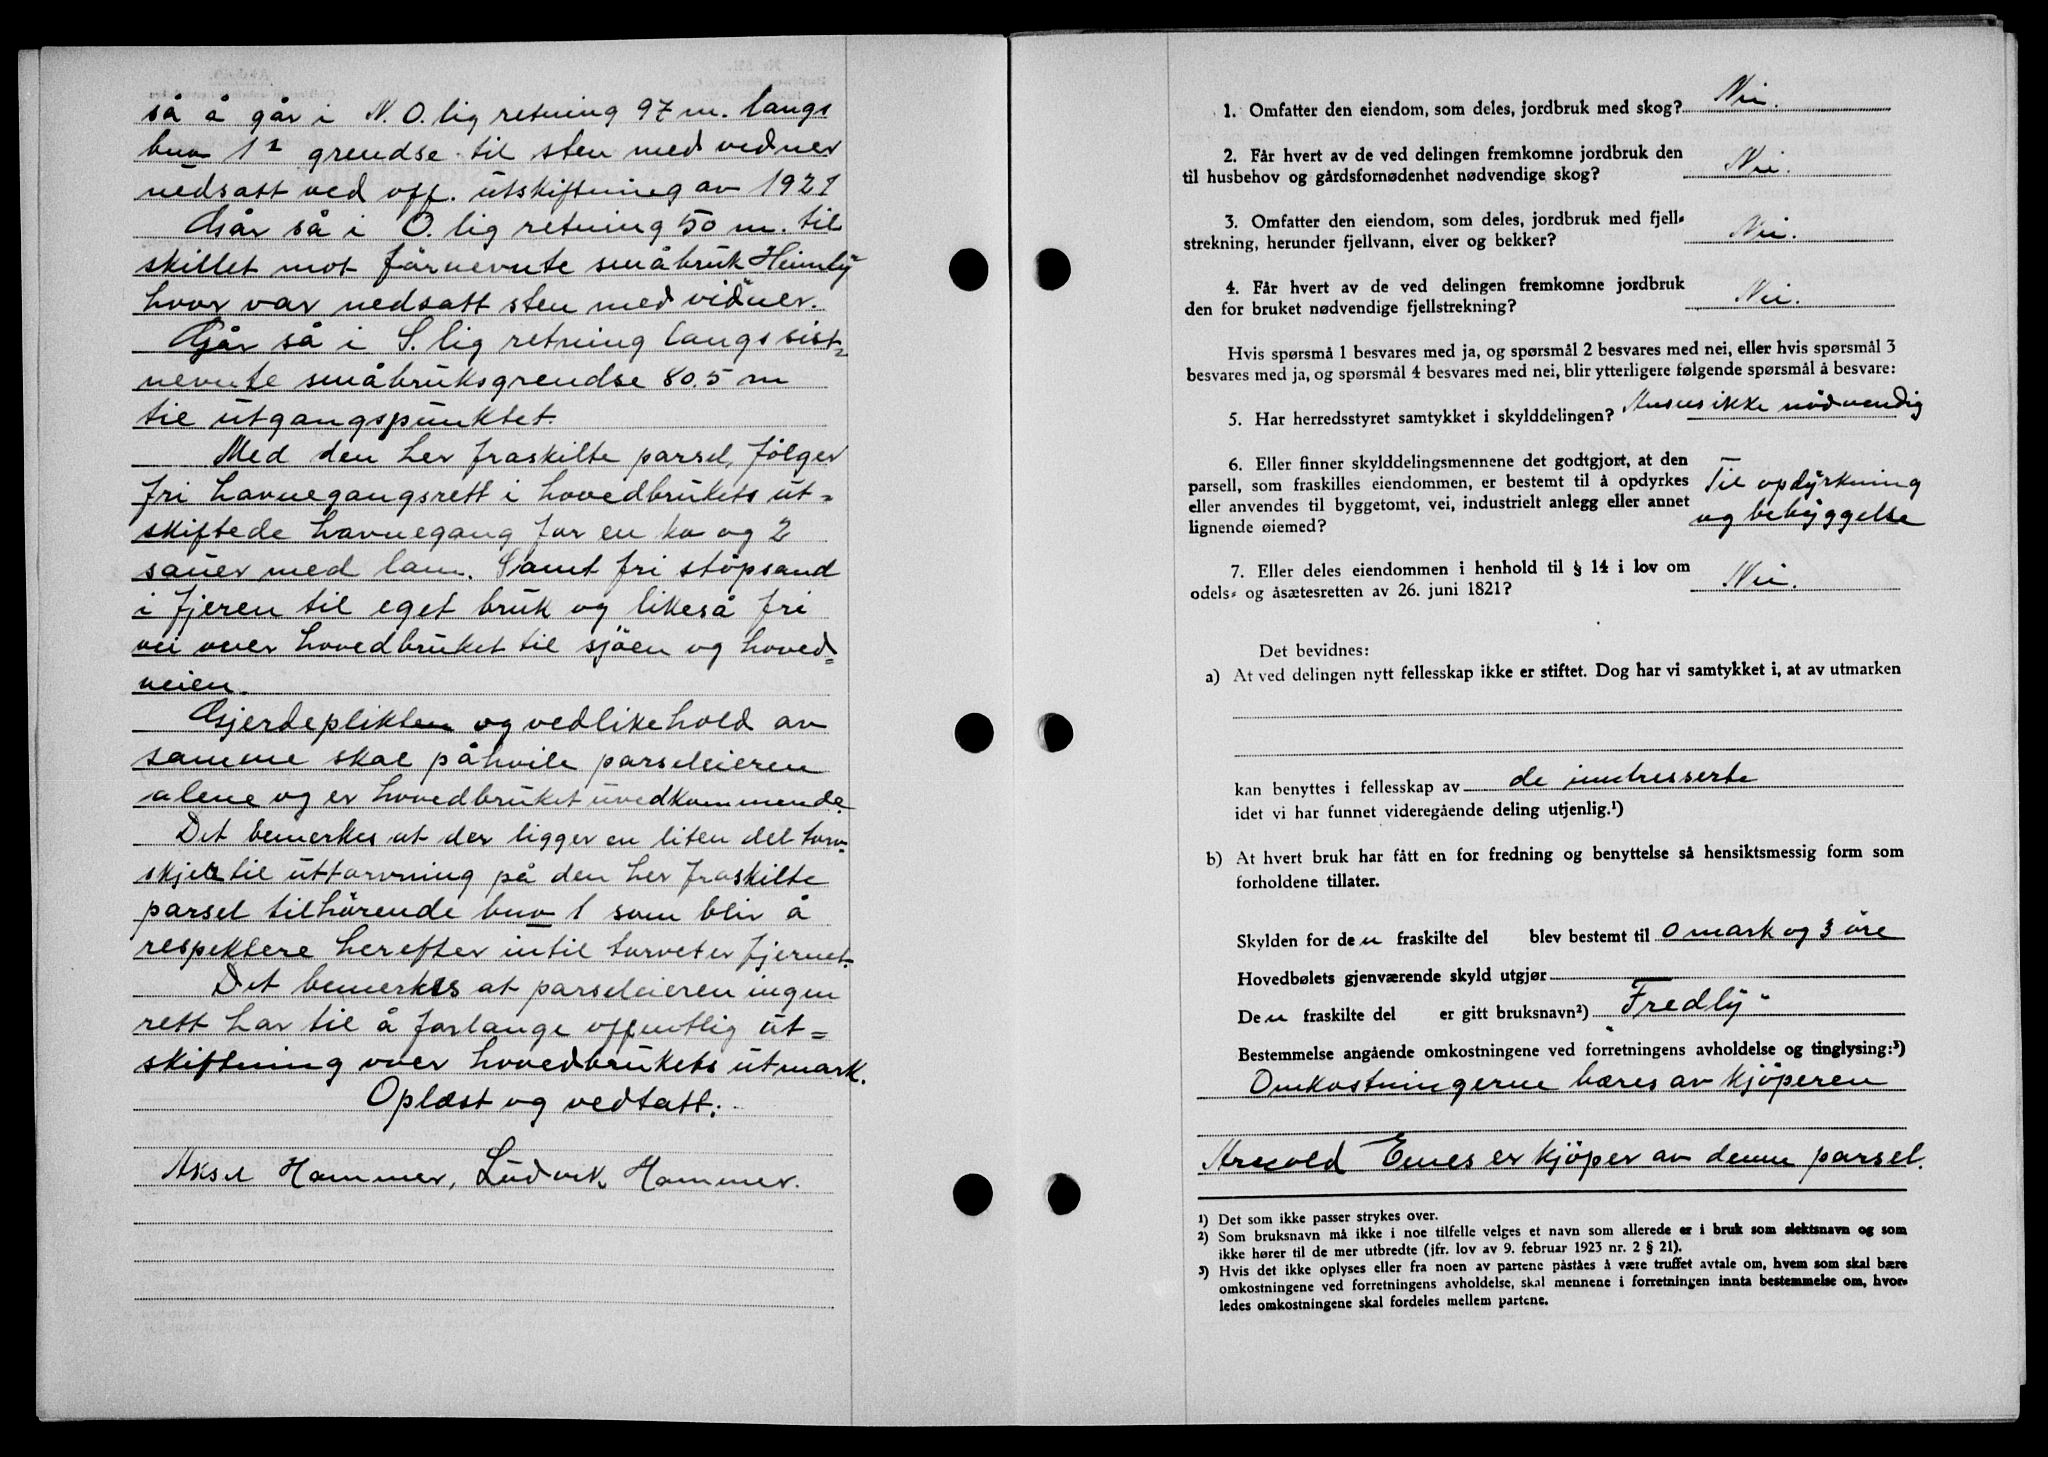 så å går i N.O.lig retning 97 m. langs
bno 1s grendse til sten med vedner
nedsatt ved off. utskiftning av 1921
Går så i O.lig retning 50 m. til
skillet mot förnevnte småbruk „Heimly"
hvor var nedsatt sten med vidner.
Går så i S.lig retning langs sist-
nevnte småbruksgrendse 80.5 m
til utgangspunktet.
Med den her fraskilte parsel, følger
fri havnegangsrett i hovedbrukets ut-
skiftede havnegang for en ko og 2
sauer med lam. Samt fri støpsand
i fjeren til eget bruk og likeså fri
vei over hovedbruket til sjöen og hoved-
veien.
Gjerdeplikten og vedlikehold av
samme skal påhvile parseleieren
alene og er hovedbruket uvedkommende.
Det bemerkes at der ligger en liten del torv-
skjer til uttorvning på den her fraskilte
parsel tilhörende bno 1 som blir å
respektere herefter intil torvet er fjernet.
Det bemerkes at parseleieren ingen
rett har til å forlange offentlig ut-
skiftning over hovedbrukets utmark.
Oplæst og vedtatt.
Aksel Hammer, Ludvik Hammer.
1. Omfatter den eiendom, som deles, jordbruk med skog? Nei.
2. Får hvert av de ved delingen fremkomne jordbruk den
til husbehov og gårdsfornødenhet nødvendige skog? Nei.
3. Omfatter den eiendom, som deles, jordbruk med fjell-
strekning, herunder fjellvann, elver og bekker? Nei.
4. Får hvert av de ved delingen fremkomne jordbruk
den for bruket nødvendige fjellstrekning? Nei.
Hvis spørsmå 1 besvares med ja, og spørsmål 2 besvares med nei, eller hvis spørsmål 3
besvares med ja, og spørsmål 4 besvares med nei, blir ytterligere følgende spørsmål å besvare:
5. Har herredsstyret samtykket i skylddelingen? Ansees ikke nödvendig
6. Eller finner skylddelingsmennene det godtgjort, at den
parsell, som fraskilles eiendommen, er bestemt til å opdyrkes Til opdyrkning
eller anvendes til byggetomt, vei, industrielt anlegg eller annet
lignende øiemed? og bebyggelse
7. Eller deles eiendommen i henhold til § 14 i lov om
odels- og åsætesretten av 26. juni 1821? Nei.
Det bevidnes:
a) At ved delingen nytt fellesskap ikke er stiftet. Dog har vi samtykket i, at av utmarken
kan benyttes i fellesskap av de inntresserte
idet vi har funnet videregående deling utjenlig.¹)
b) At hvert bruk har fått en for fredning og benyttelse så hensiktsmessig form som
forholdene tillater.
Skylden for den fraskilte del blev bestemt til 0 mark og 3 øre
Hovedbølets gjenværende skyld utgjør
Den fraskilte del er gitt bruksnavn²) „Fredly"
Bestemmelse angående omkostningene ved forretningens avholdelse og tinglysing:³)
Omkostningerne bæres av kjöperen
Arevold Enes er kjöper av denne parsel.
¹) Det som ikke passer strykes over.
²) Som bruksnavn må ikke i noe tilfelle velges et navn som allerede er i bruk som slektsnavn og som
ikke hører til de mer utbredte (jfr. lov av 9. februar 1923 nr. 2 § 21).
³) Hvis det ikke oplyses eller fra noen av partene påståes å være truffet avtale om, hvem som skal bære
omkostningene ved forretningens avholdelse, skal mennene i forretningen innta bestemmelse om, hvor-
ledes omkostningene skal fordeles mellem partene.